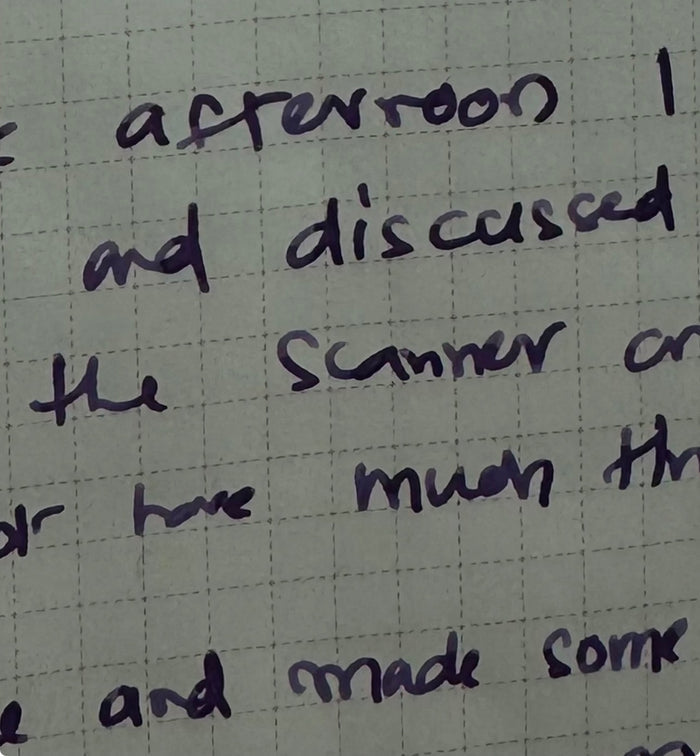 afternoon I
and discussed
the scanner
have much
and made some